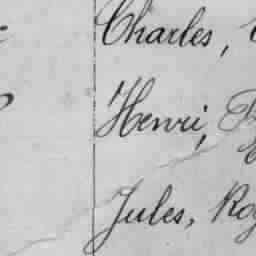 Charles,
Henri,
Jules, Rog